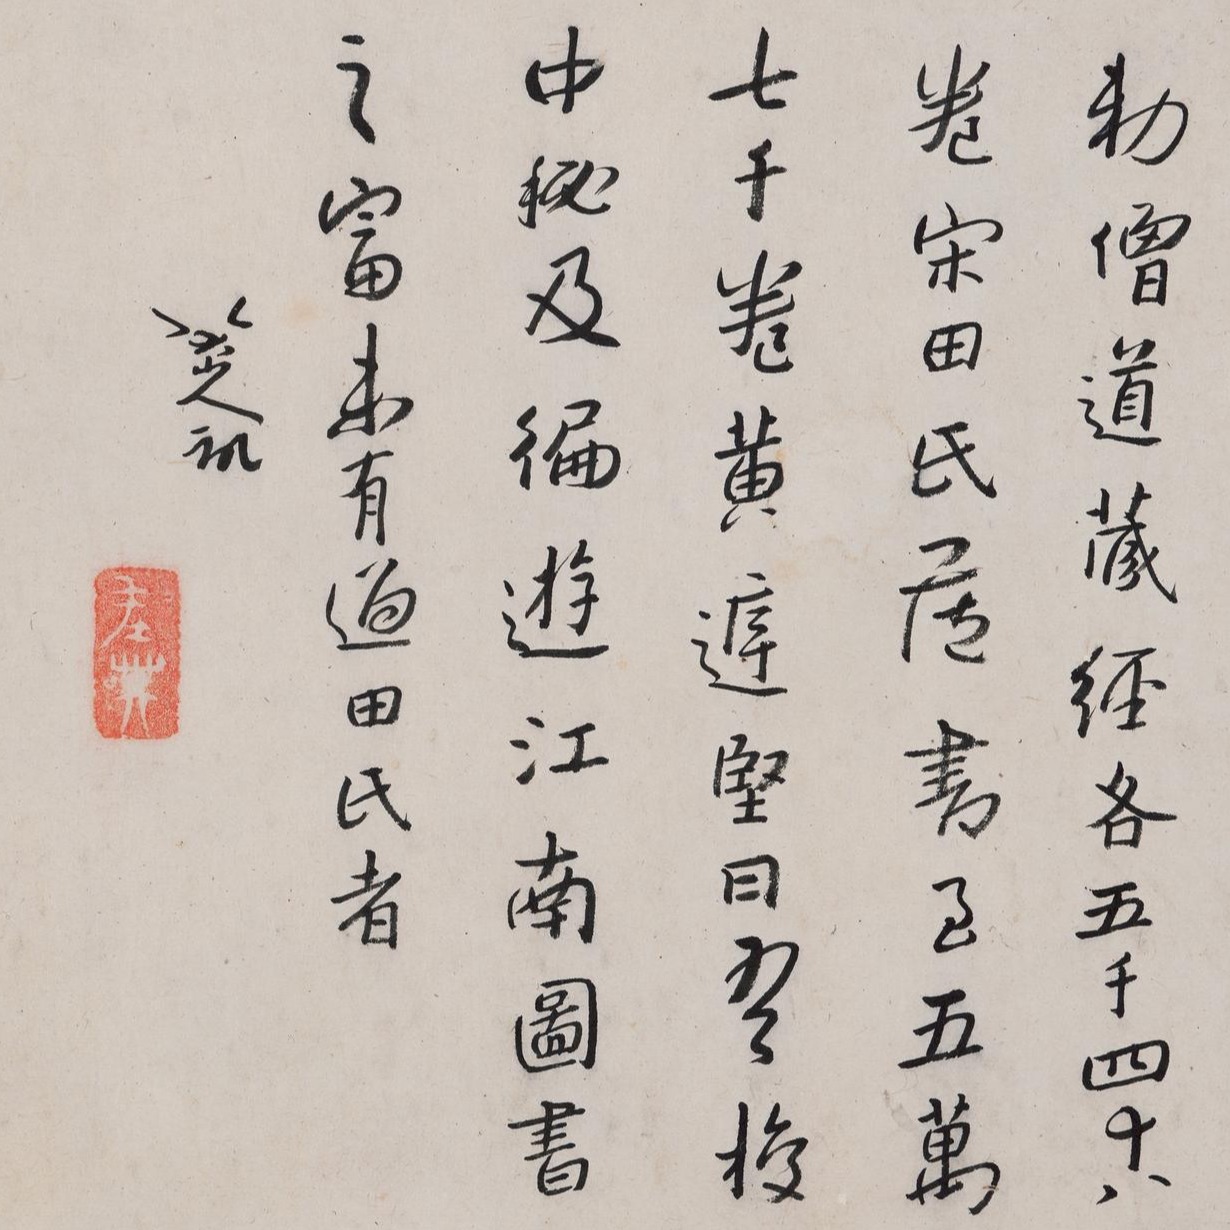 勅僧道藏經各五千四十八
卷宋田氏書至五萬
七千卷黃庭堅曰吾校
中秘及徧遊江南圖書
之富未有過田氏者
八大山人